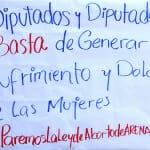 Diputados y Diputad
Basta de Generar
ufrimiento y Dolo
e Las Mujeres
ParemosLaLeydeAbortodeARENA